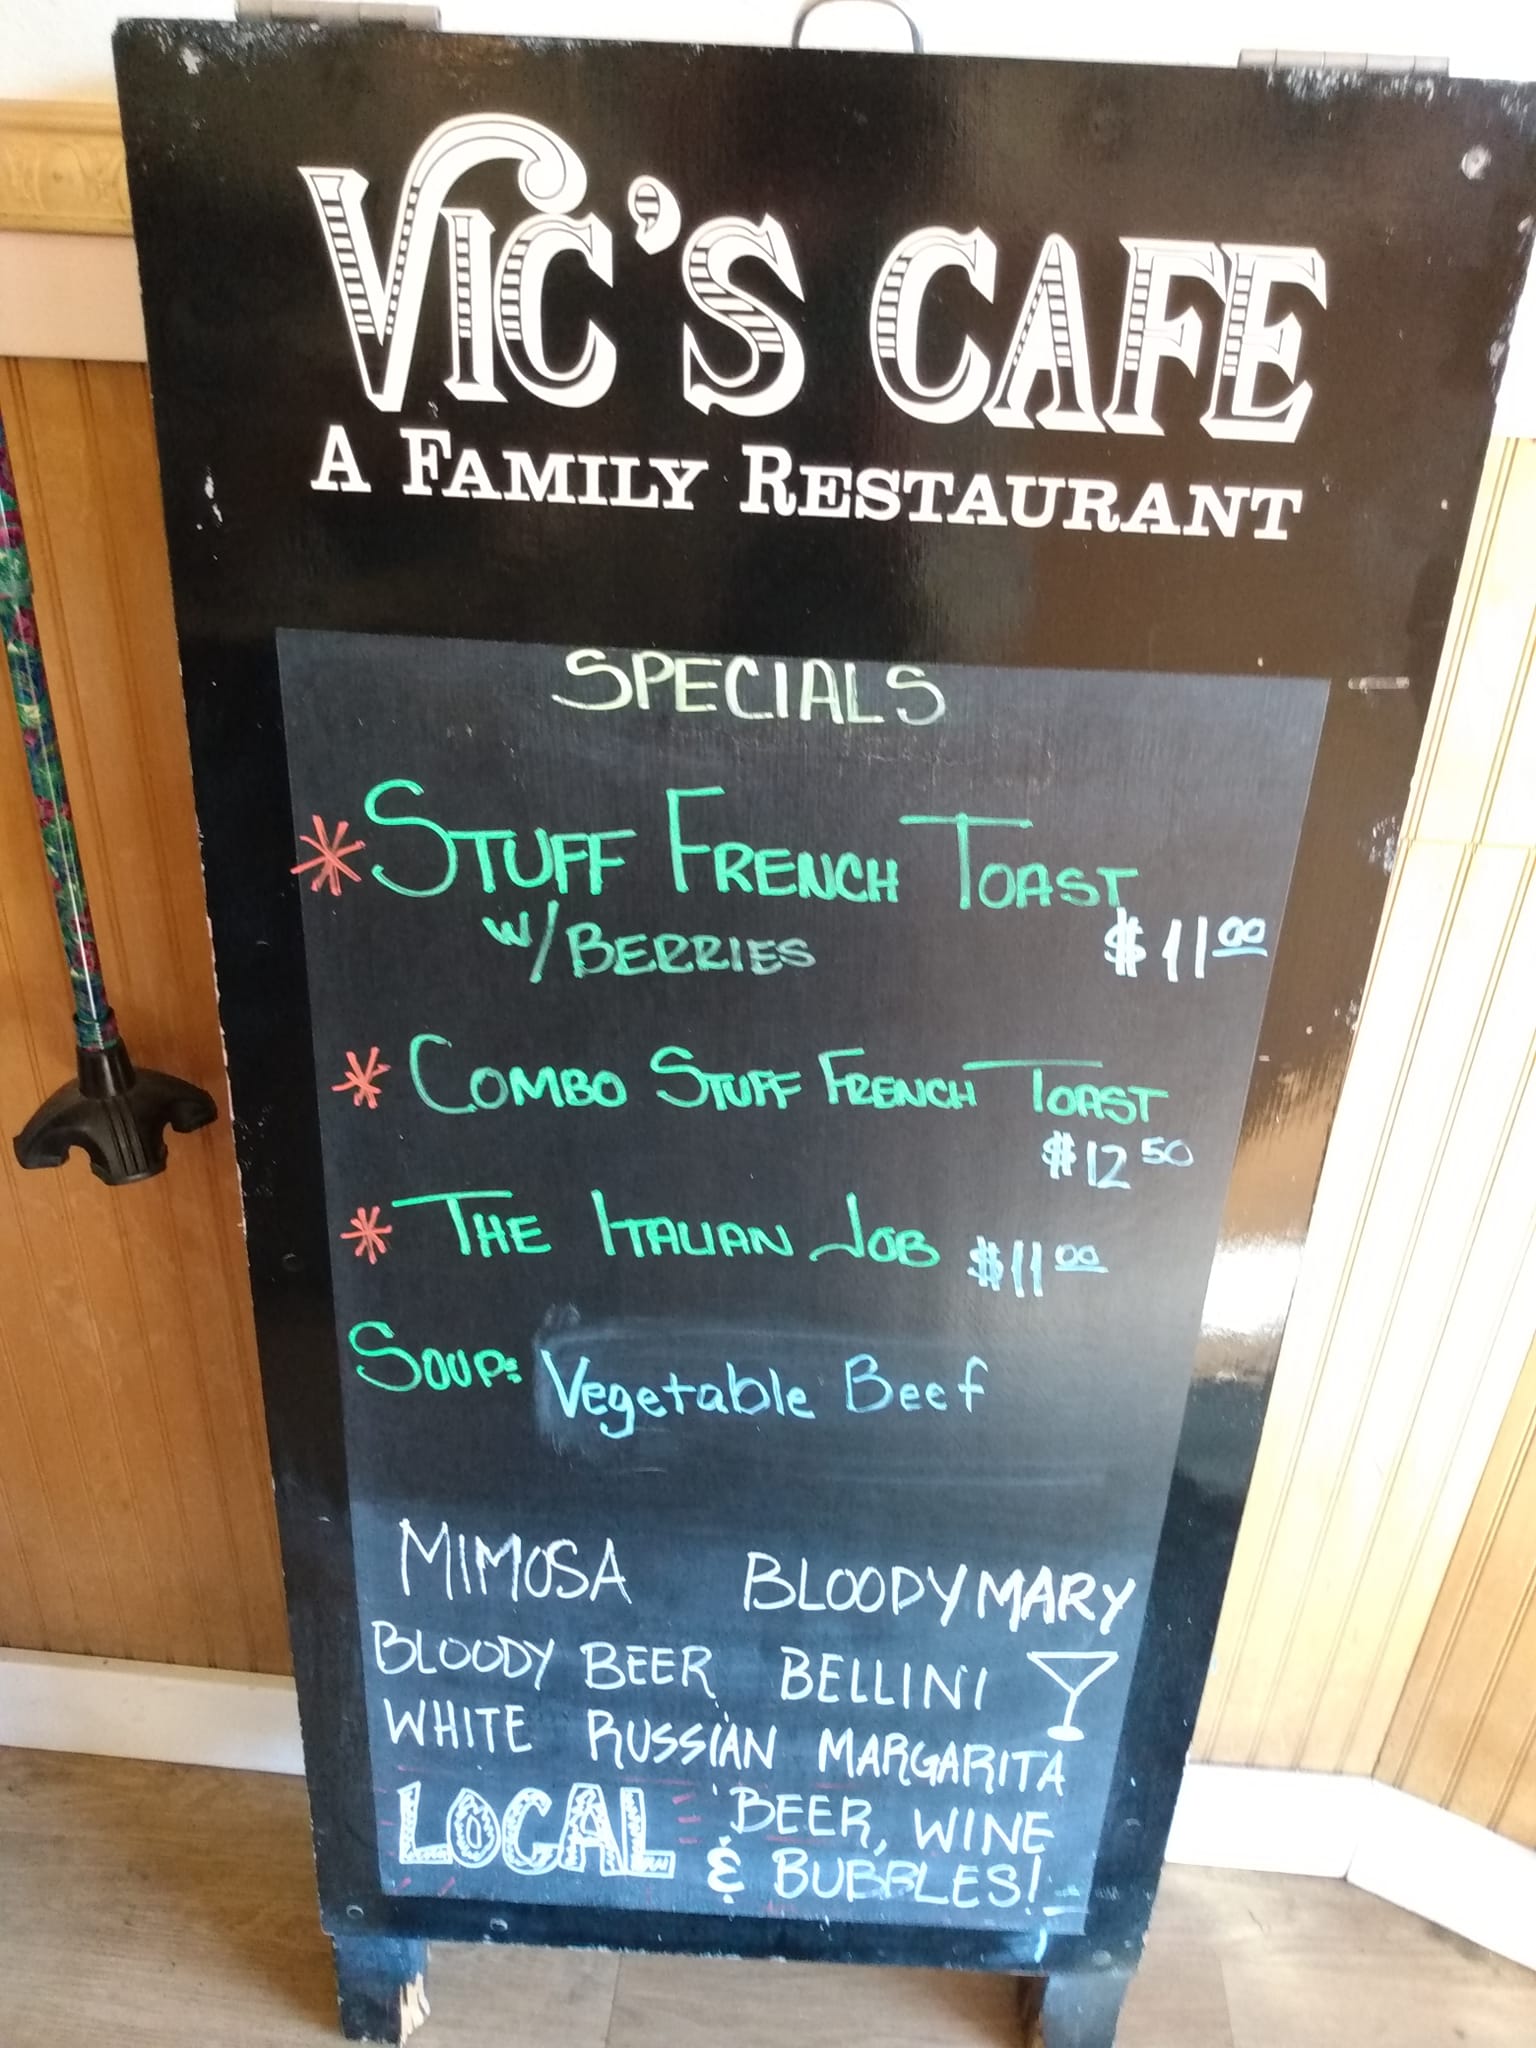 VIC'S CAFE
A FAMILY RESTAURANT
SPECIALS
* STUFF FRENCH TOAST
W/BERRIES $11.00
* COMBO STUFF FRENCH TOAST
$12.50
* THE ITALIAN JOB $11.00
SOUP: Vegetable Beef
MIMOSA BLOODY MARY
BLOODY BEER BELLINI
WHITE RUSSIAN MARGARITA
LOCAL BEER, WINE
& BUBBLES!